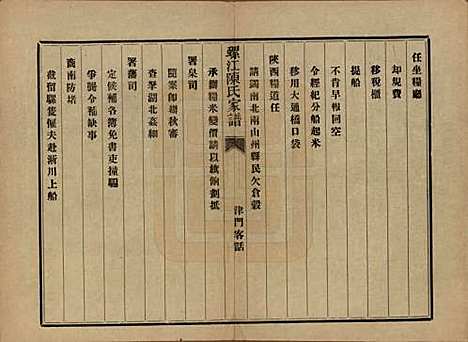 任坐糧廳
却規費
移稅櫃
提船
不肯早報回空
令經紀分船起米
移用大通橋口袋
陝西糧道任
請緩南北兩山州縣民欠倉穀
螺江陳氏家譜
津門客話
承辦糧米變價請以旗餉劃抵
署臬司
隨案卽辦秋審
查拏湖北姦細
署藩司
定候補各簿免書吏撞騙
爭襲令補缺事
商南防堵
截留騾隻催夫赴淅川上船